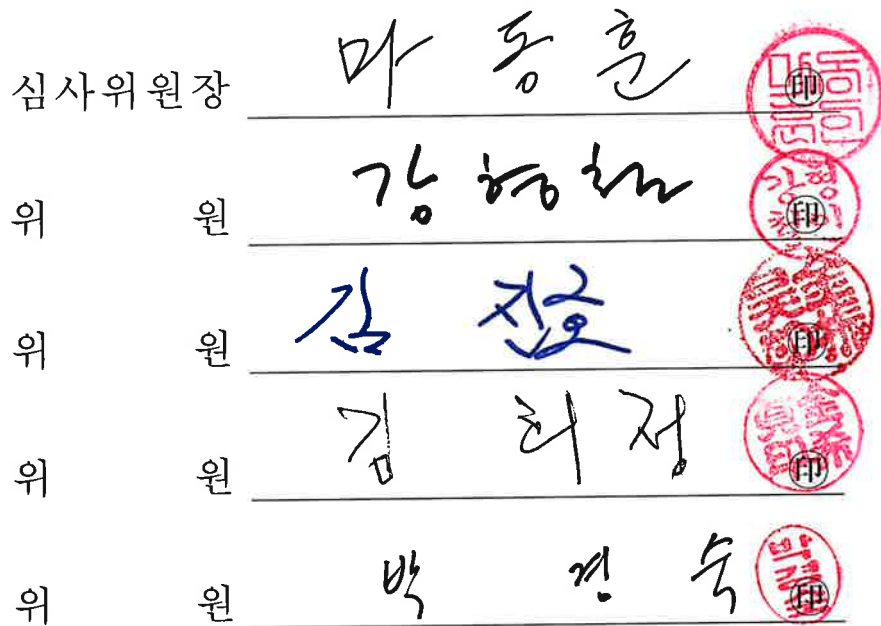 심사위원장 마 동 훈 印
위 원 강 형 철 印
위 원 김 印
위 원 김 희 정 印
위 원 박 경 숙 印